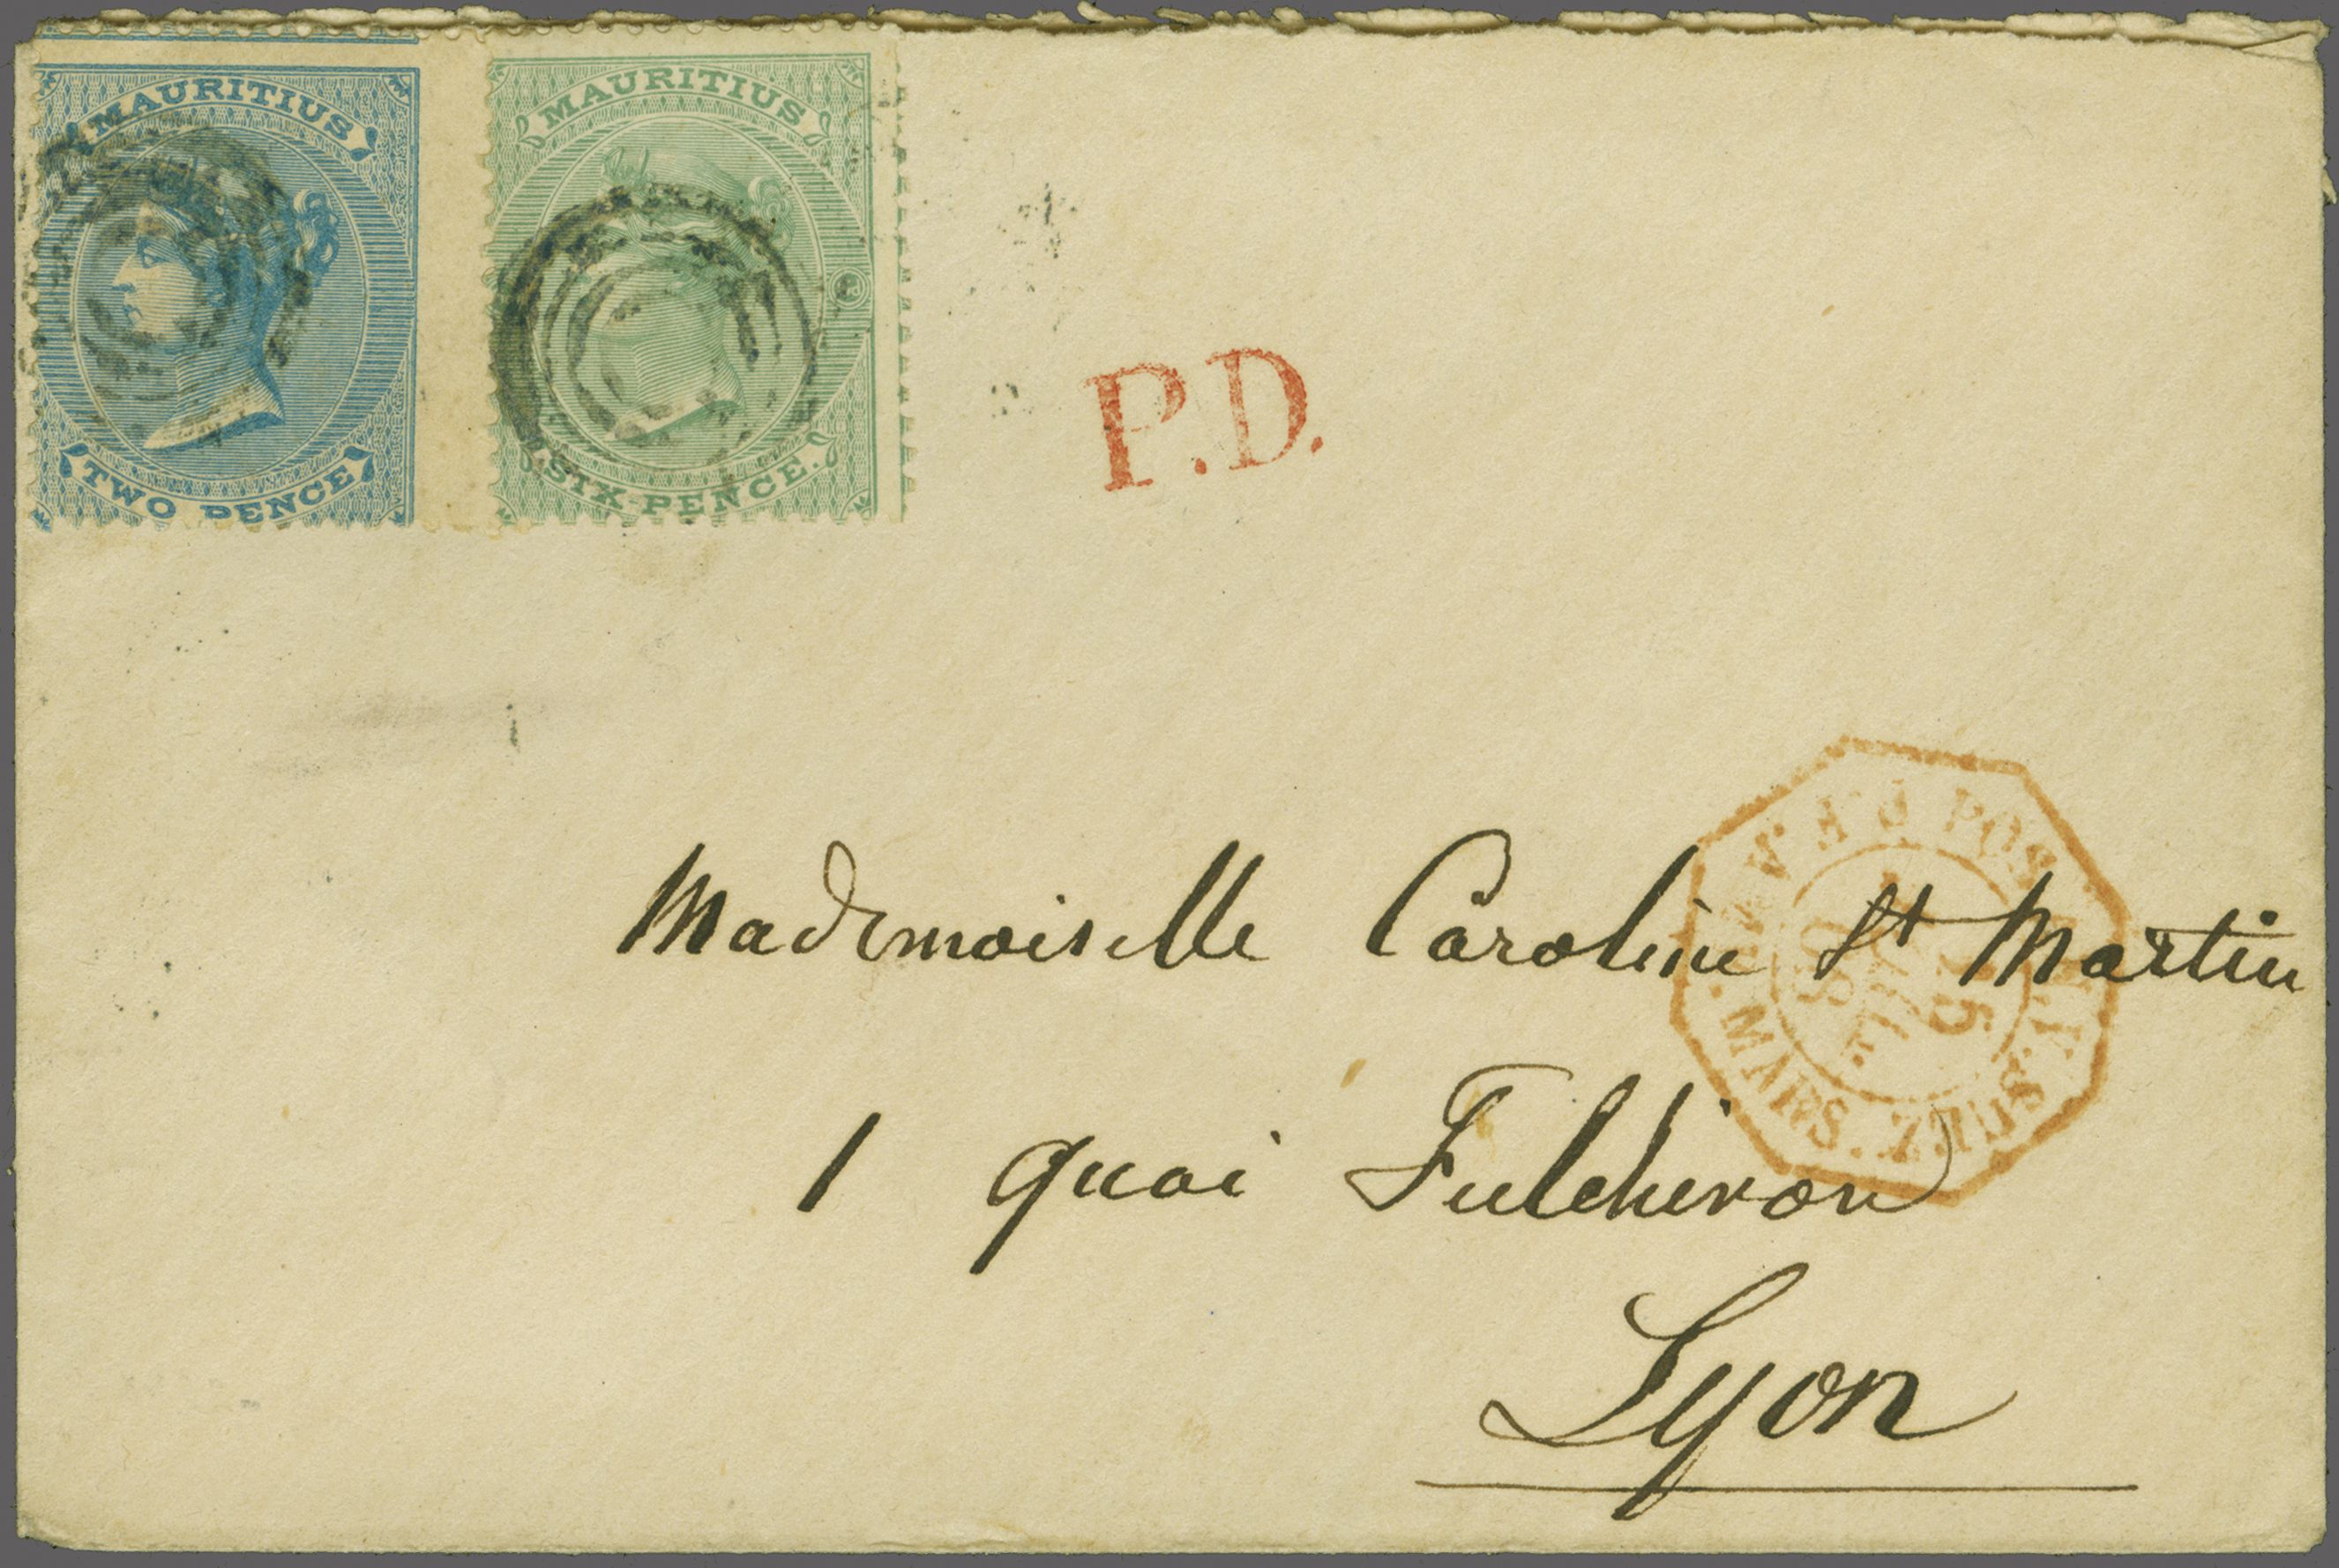 MAURITIUS
TWO PENCE
MAURITIUS
SIX-PENCE.
P.D.
Mademoiselle Caroline St Martin
1 quai Fulchiron
Lyon
SUEZ. MARS.